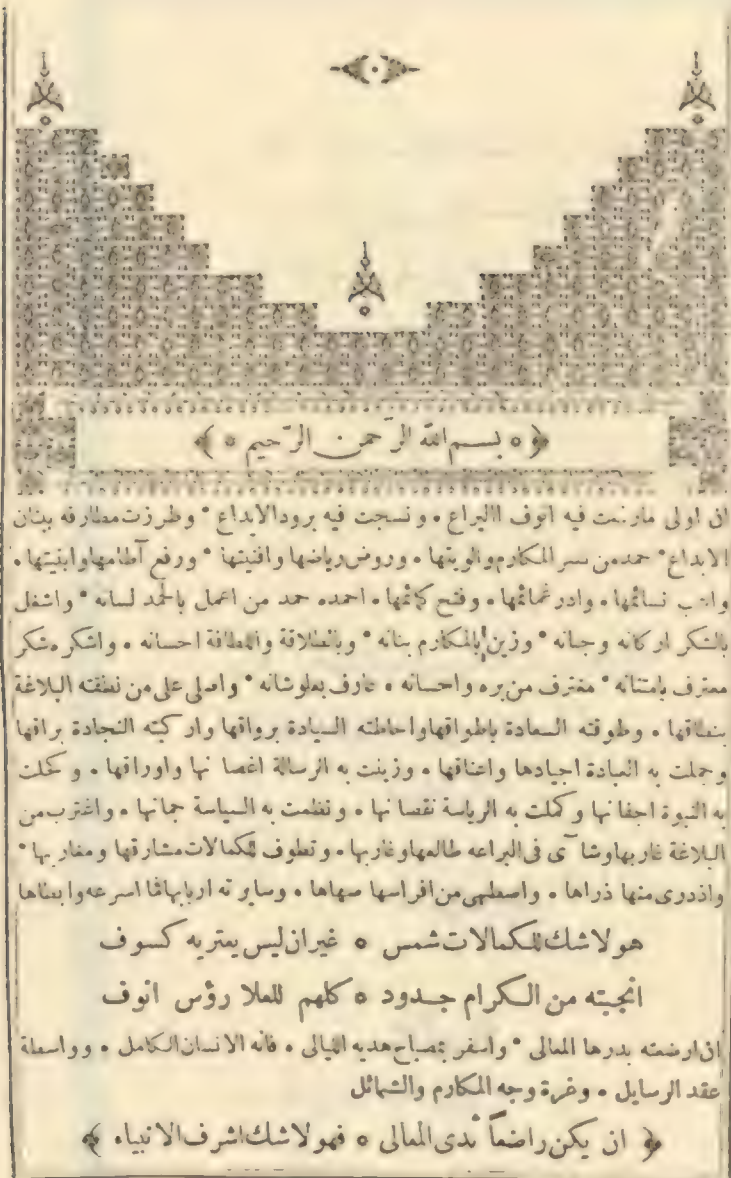 ﴿ ° بسم الله الرّحمن الرّحيم ° ﴾
ان اولى مارعفت فيه انوف اليراع * ونسجت فيه برود الابداع * وطرزت مطارفه ببنان
الابداع * حمد من سر المكارم والويتها * وروض رياضها وافنيتها * ورفع آطامها وابنيتها *
نسائمها * وادر غمائمها * وفتح كمائمها * احمده حمد من اعمل بالحمد لسانه * واشغل
بالشكر اركانه وجنانه * وزين بالمكارم بنانه * وبالطلاقة واللطافة احسانه * واشكره شكر
معترف بامتنانه * مغترف من بره واحسانه * عارف بعلوشانه * واصلى على من نطقته البلاغة
بنطاقها * وطوقته السعادة باطواقها واحاطته السيادة برواقها واركبته النجادة براقها
وجملت به العبادة اجيادها واعناقها * وزينت به الرسالة اغصانها واوراقها * وكحلت
به النبوة اجفانها وكملت به الرياسة نقصانها * ونظمت به السياسة جمانها * واغترب من
البلاغة غاربها وشاآى فى البراعه طالعها وغاربها * وتطوف للكمالات مشارقها ومغاربها *
واذدرى منها ذراها * واسطهى من افراسها صهاها * وسايرته اربابها فما اسرعه وابطاها
هو لا شك للكمالات شمس ° غير ان ليس يعتريه كسوف
انجبته من الكرام جدود ° كلهم للعلا رؤس انوف
ان ارضعته بدرها المعالى * واسفر بمصباح هديه الليالى * فانه الانسان الكامل * وواسطة
عقد الرسايل * وغرة وجه المكارم والشمائل
﴿ ان يكن راضعاً ثدى المعالى ° فهو لا شك اشرف الانبياء ﴾